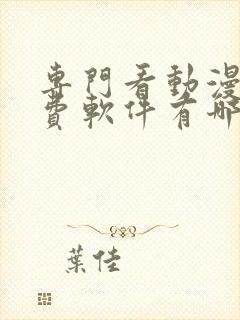 專門看動漫
費軟件有哪
葉佳